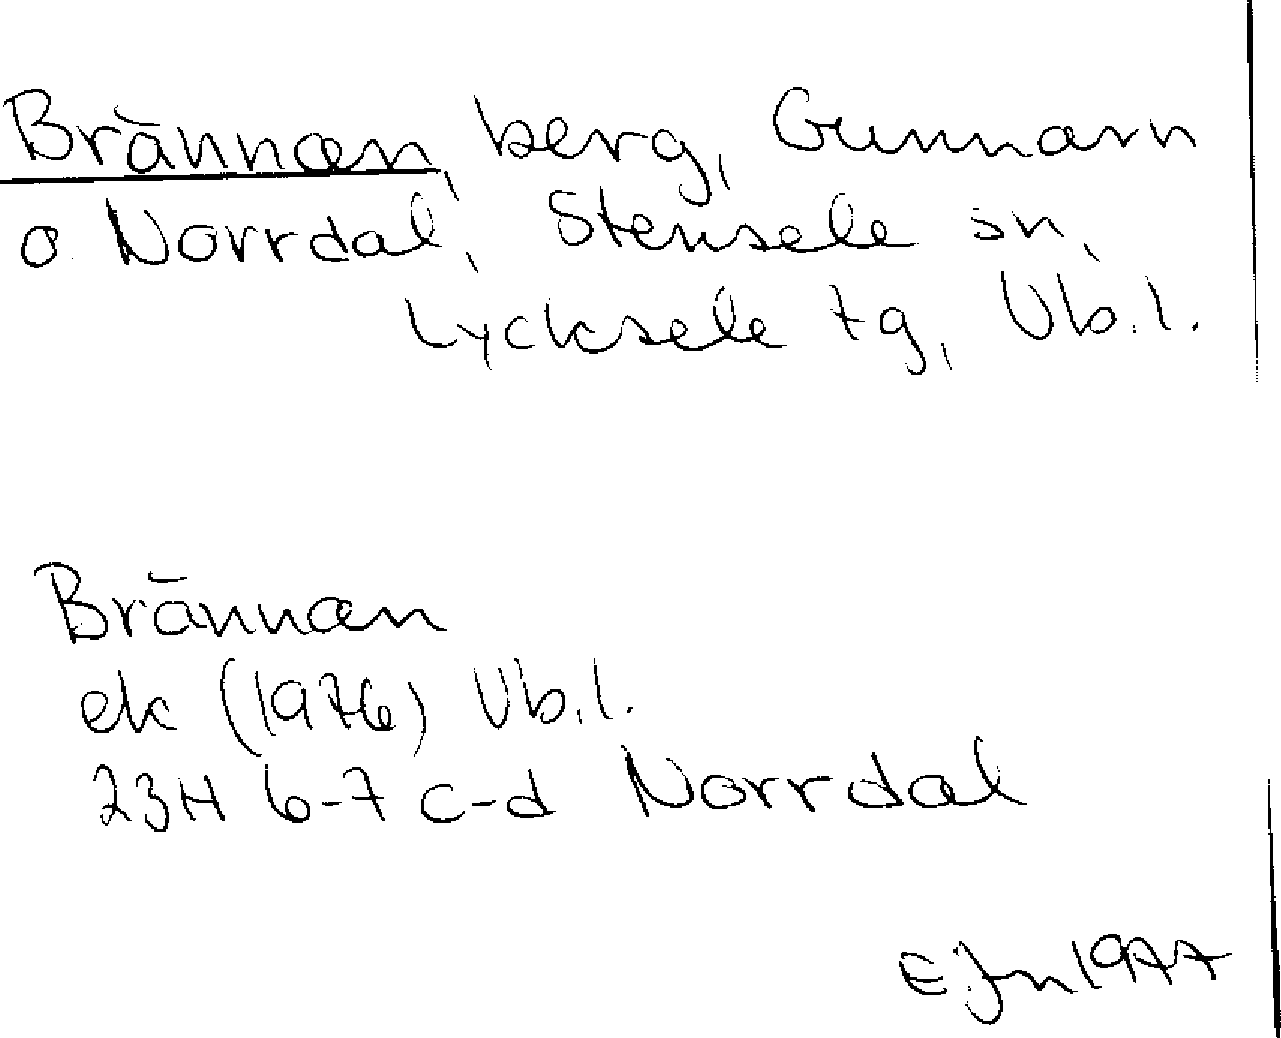 Brännan, berg, Gunnarn
o Norrdal, Stensele sn,
Lycksele tg, Vb.l.
Brännan
ek (1976) Vb.l.
23H 6-7 c-d Norrdal
E Jn 1977